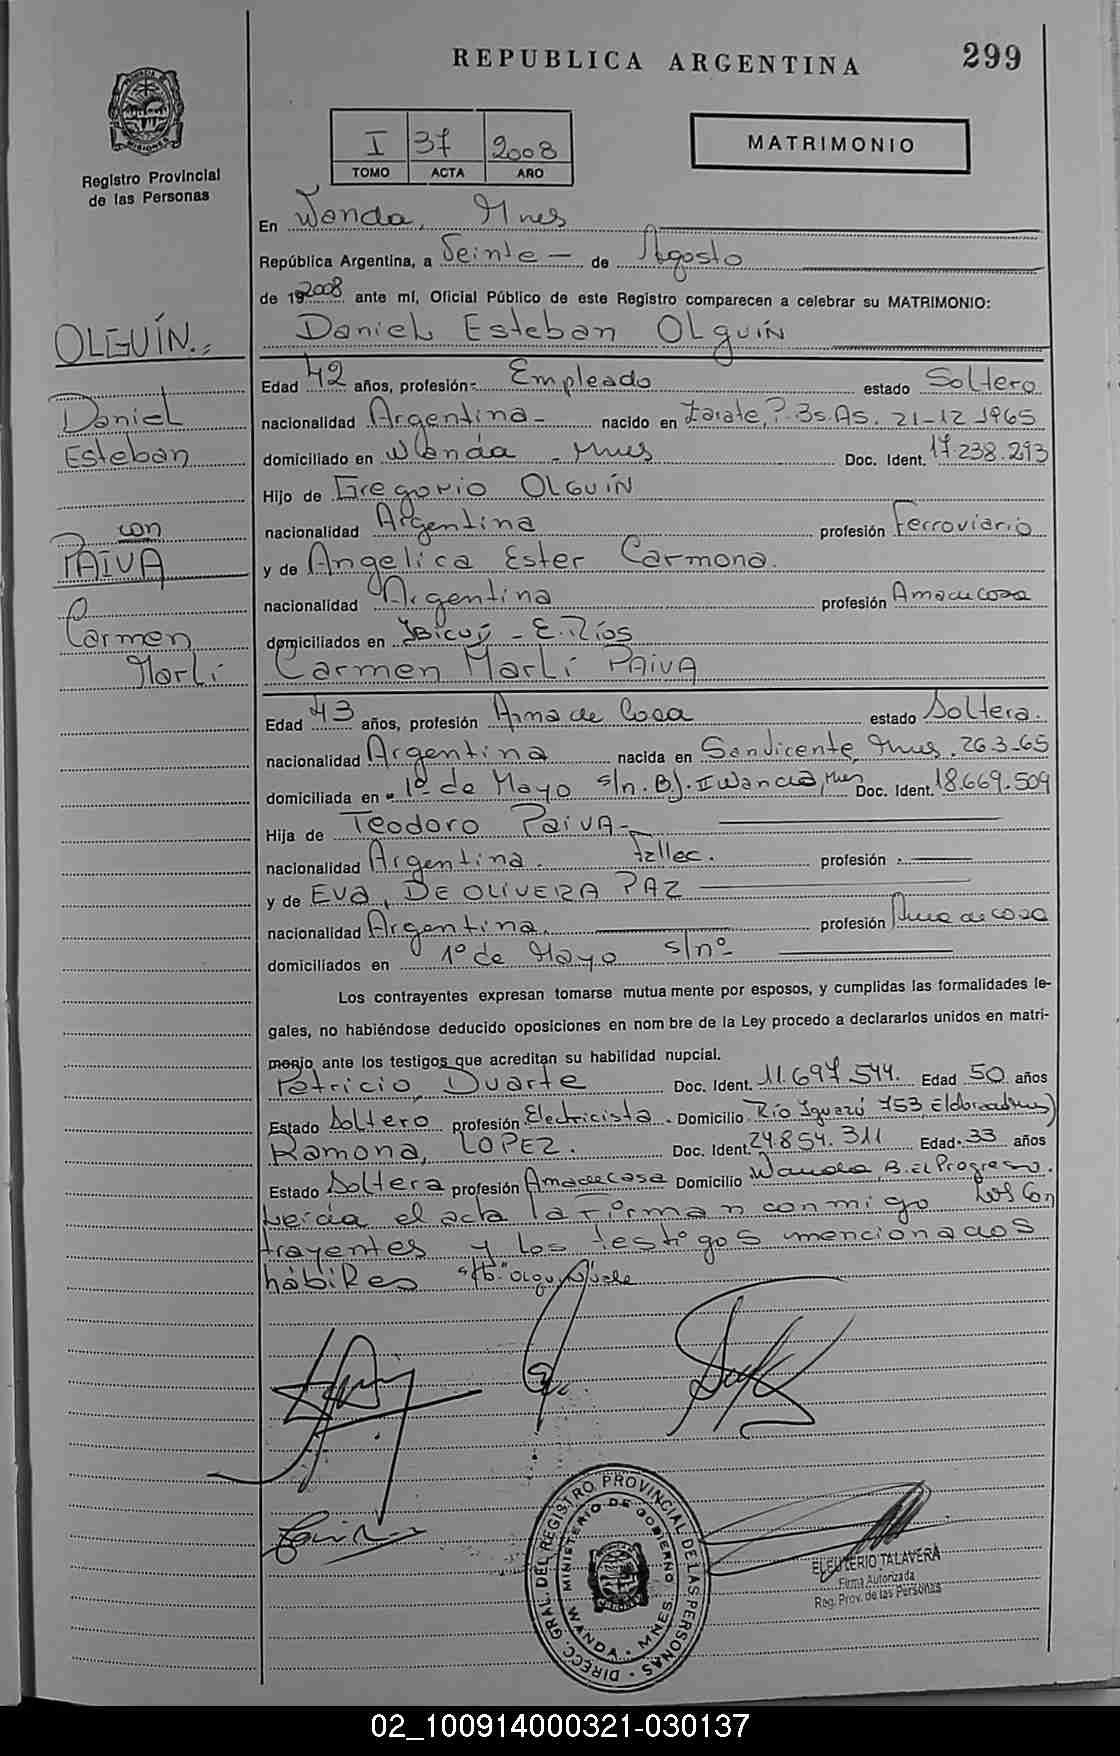 REPUBLICA ARGENTINA 299
PROVINCIA DE MISIONES
Registro Provincial
de las Personas
I 37 2008
TOMO ACTA AÑO
MATRIMONIO
En Wanda, Mnes
República Argentina, a Veinte — de Agosto
de 192008 ante mí, Oficial Público de este Registro comparecen a celebrar su MATRIMONIO:
Daniel Esteban OLguín
OLGUÍN.,
Daniel
Esteban
con
PAIVA
Carmen
Marlí
Edad 42 años, profesión Empleado estado Soltero
nacionalidad Argentina nacido en Zarate, P. Bs.As. 21-12-1965
domiciliado en Wanda - Mnes Doc. Ident. 17.238.293
Hijo de Gregorio OLGUÍN
nacionalidad Argentina profesión Ferroviario
y de Angelica Ester Carmona.
nacionalidad Argentina profesión Ama de casa
domiciliados en Ibicuy - E. Ríos
Carmen Marlí PAIVA
Edad 43 años, profesión Ama de Casa estado Soltera.
nacionalidad Argentina nacida en San Vicente, Mnes. 26-3-65
domiciliada en 1º de Mayo s/n. Bº. II Wanda, Mnes Doc. Ident. 18.669.509
Hija de Teodoro PAIVA
nacionalidad Argentina. Fallec. profesión
y de EVA, DE OLIVEIRA PAZ
nacionalidad Argentina. profesión Ama de casa
domiciliados en 1º de Mayo s/nº
Los contrayentes expresan tomarse mutua mente por esposos, y cumplidas las formalidades le-
gales, no habiéndose deducido oposiciones en nom bre de la Ley procedo a declararlos unidos en matri-
monio ante los testigos que acreditan su habilidad nupcial.
Patricio, Duarte Doc. Ident. 11.697.544. Edad 50 años
Estado Soltero profesión Electricista. Domicilio Río Iguazú 753, Eldorado, Mnes)
Ramona, LOPEZ. Doc. Ident. 24.854.311 Edad 33 años
Estado Soltera profesión Ama de Casa Domicilio Wanda B. El Progreso.
Leída el acta la firman conmigo los Con
trayentes y los testigos mencionados
hábiles
DIRECC. GRAL. DEL REGISTRO PROVINCIAL DE LAS PERSONAS
MINISTERIO DE GOBIERNO
WANDA - MNES.
ELEUTERIO TALAVERA
Firma Autorizada
Reg. Prov. de las Personas
02_100914000321-030137